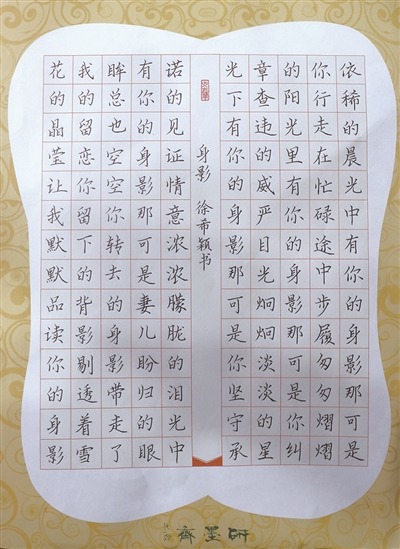 依稀的晨光中有你的身影那可是
你行走在忙碌途中步履匆匆熠熠
的阳光里有你的身影那可是你纠
章查违的威严目光炯炯淡淡的星
光下有你的身影那可是你坚守承
身影 徐希颖书
诺的见证情意浓浓朦胧的泪光中
有你的身影那可是妻儿盼归的眼
眸总也空空你转去的身影带走了
我的留恋你留下的背影剔透着雪
花的晶莹让我默默品读你的身影
研墨斋